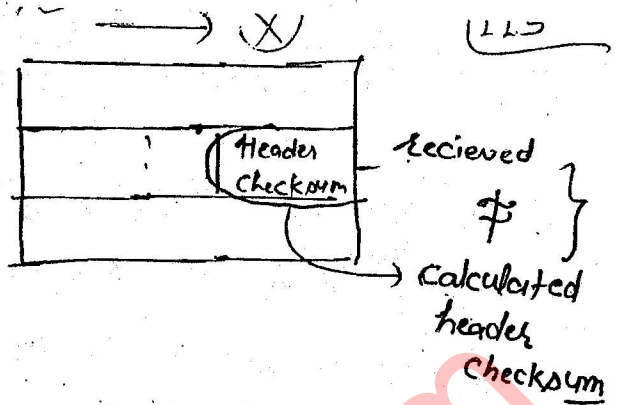 → X
Header
checksum
recieved
≠
calculated
header
checksum